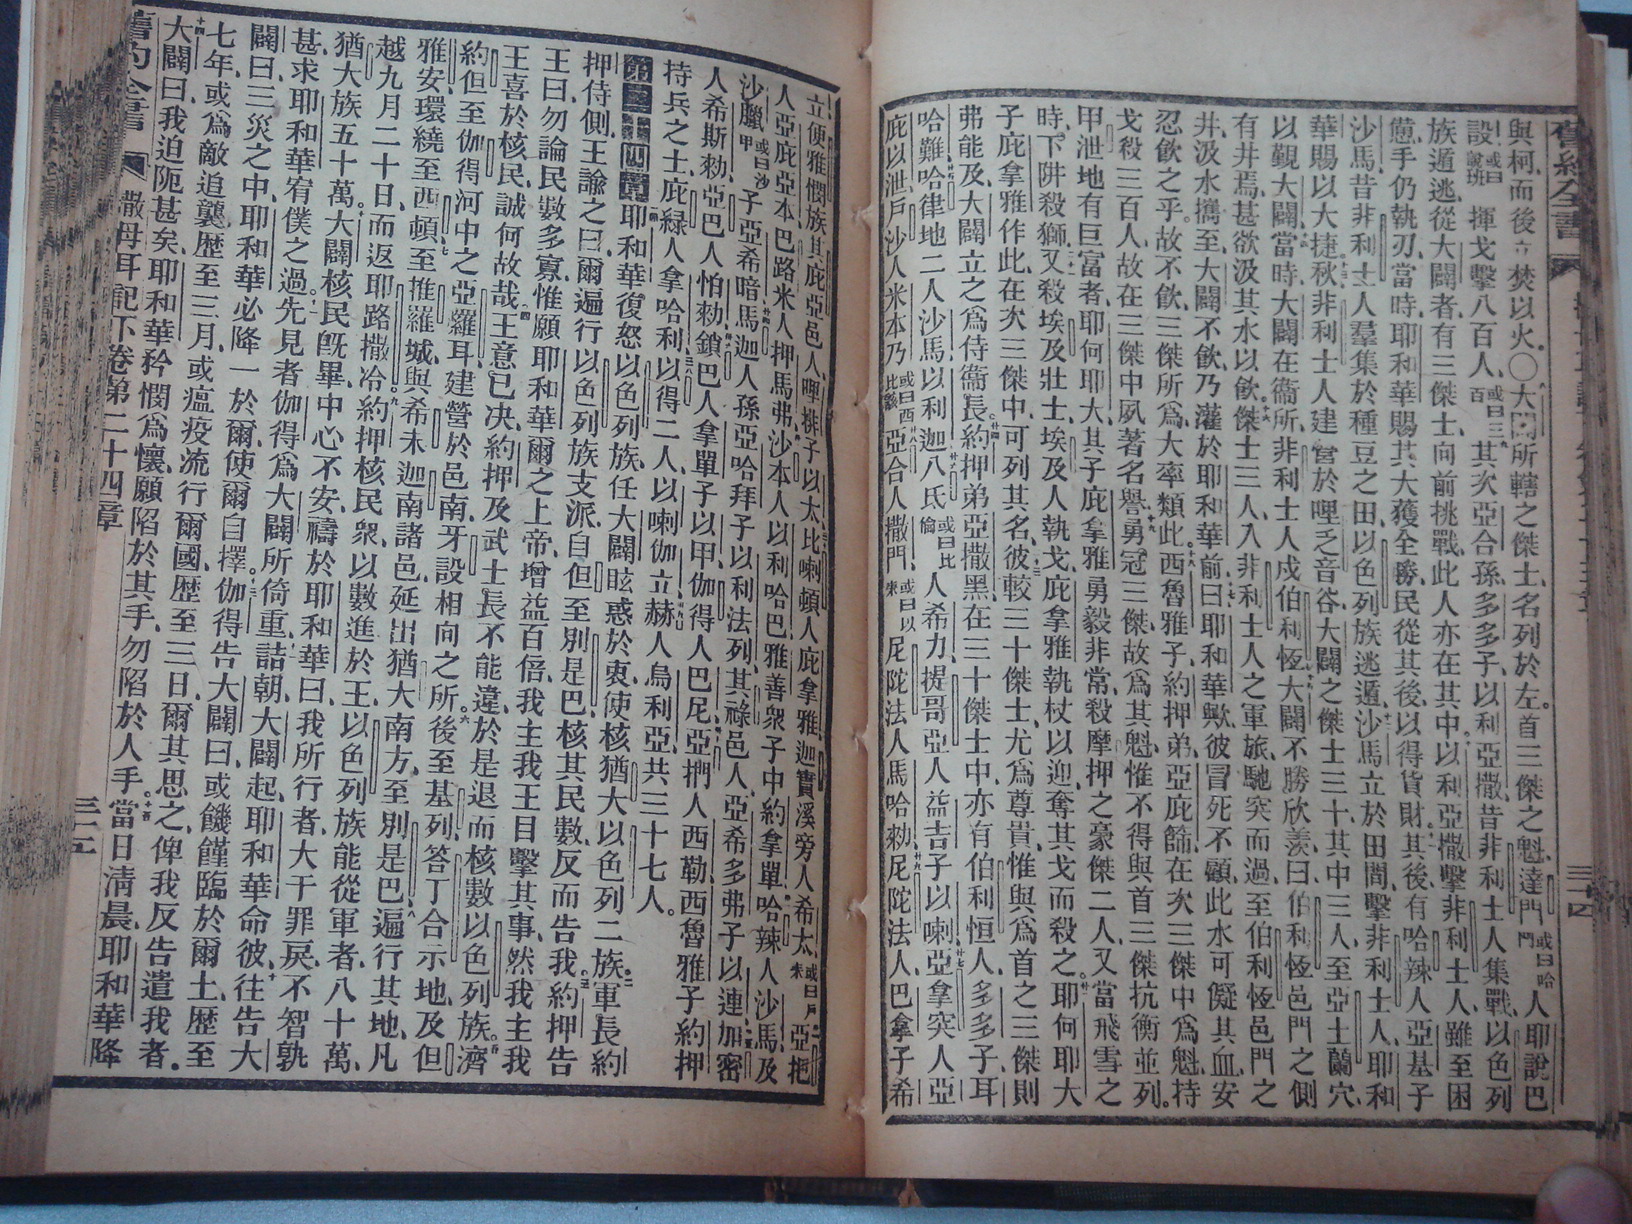 與柯而後立焚以火〇大闢所轄之傑士名列於左首三傑之魁達門或曰哈門人耶說巴
設或曰設班揮戈擊八百人或曰三百其次亞合孫多多子以利亞撒昔非利士人集戰以色列
族遁逃從大闢者有三傑士向前挑戰此人亦在其中以利亞撒擊非利士人雖至困
憊手仍執刃當時耶和華賜其大獲全勝民從其後以得貨財其後有哈辣人亞基子
沙馬昔非利士人羣集於種豆之田以色列族逃遁沙馬立於田間擊非利士人耶和
華賜以大捷秋非利士人建營於哩乏音谷大闢之傑士三十其中三人至亞土蘭穴
以覲大闢當時大闢在衞所非利士人戍伯利恆大闢不勝欣羨曰伯利恆邑門之側
有井焉甚欲汲其水以飲傑士三人入非利士人之軍旅馳突而過至伯利恆邑門之
井汲水攜至大闢不飲乃灌於耶和華前曰耶和華歟彼冒死不顧此水可儗其血安
忍飲之乎故不飲三傑所爲大率類此西魯雅子約押弟亞庇篩在次三傑中爲魁持
戈殺三百人故在三傑中夙著名譽勇冠三傑故爲其魁惟不得與首三傑抗衡並列
甲泄地有巨富者耶何耶大其子庇拿雅勇毅非常殺摩押之豪傑二人又當飛雪之
時下阱殺獅又殺埃及壯士埃及人執戈庇拿雅執杖以迎奪其戈而殺之耶何耶大
子庇拿雅作此在次三傑中可列其名彼較三十傑士尤爲尊貴惟與爲首之三傑則
弗能及大闢立之爲侍衞長約押弟亞撒黑在三十傑士中亦有伯利恒人多多子耳
哈難哈律地二人沙馬以利迦八氏或曰比倫人希力提哥亞人益吉子以喇亞拿突人亞
庇以泄戶沙人米本乃或曰西比該亞合人撒門或曰以來尼陀法人馬哈勑尼陀法人巴拿子希
立便雅憫族其庇亞邑人哩排子以太比喇頓人庇拿雅迦實溪旁人希太或曰戶來亞把
人亞庇亞本巴路米人押馬弗沙本人以利哈巴雅善衆子中約拿單哈辣人沙馬及
沙臘或曰沙甲子亞希暗馬迦人孫亞哈拜子以利法列其祿邑人亞希多弗子以連加密
人希斯勑亞巴人怕勑鎖巴人拿單子以甲伽得人巴尼亞捫人西勒西魯雅子約押
持兵之士庇綠人拿哈利以得二人以喇伽立赫人烏利亞共三十七人
第二十四章耶和華復怒以色列族任大闢眩惑於衷使核猶大以色列二族軍長約
押侍側王諭之曰爾遍行以色列族支派自但至別是巴核其民數反而告我約押告
王曰勿論民數多寡惟願耶和華爾之上帝增益百倍我主我王目擊其事然我主我
王喜於核民誠何故哉王意已決約押及武士長不能違於是退而核數以色列族濟
約但至伽得河中之亞羅耳建營於邑南牙設相向之所後至基列答丁合示地及但
雅安環繞至西頓至推羅城與希未迦南諸邑延出猶大南方至別是巴遍行其地凡
越九月二十日而返耶路撒冷約押核民衆以數進於王以色列族能從軍者八十萬
猶大族五十萬大闢核民旣畢中心不安禱於耶和華曰我所行者大干罪戾不智孰
甚求耶和華宥僕之過先見者伽得爲大闢所倚重詰朝大闢起耶和華命彼往告大
闢曰三災之中耶和華必降一於爾使爾自擇伽得告大闢曰或饑饉臨於爾土歷至
七年或爲敵追襲歷至三月或瘟疫流行爾國歷至三日爾其思之俾我反告遣我者
大闢曰我迫阨甚矣耶和華矜憫爲懷願陷於其手勿陷於人手當日淸晨耶和華降
舊約全書 撒母耳記下卷第二十四章 三十五